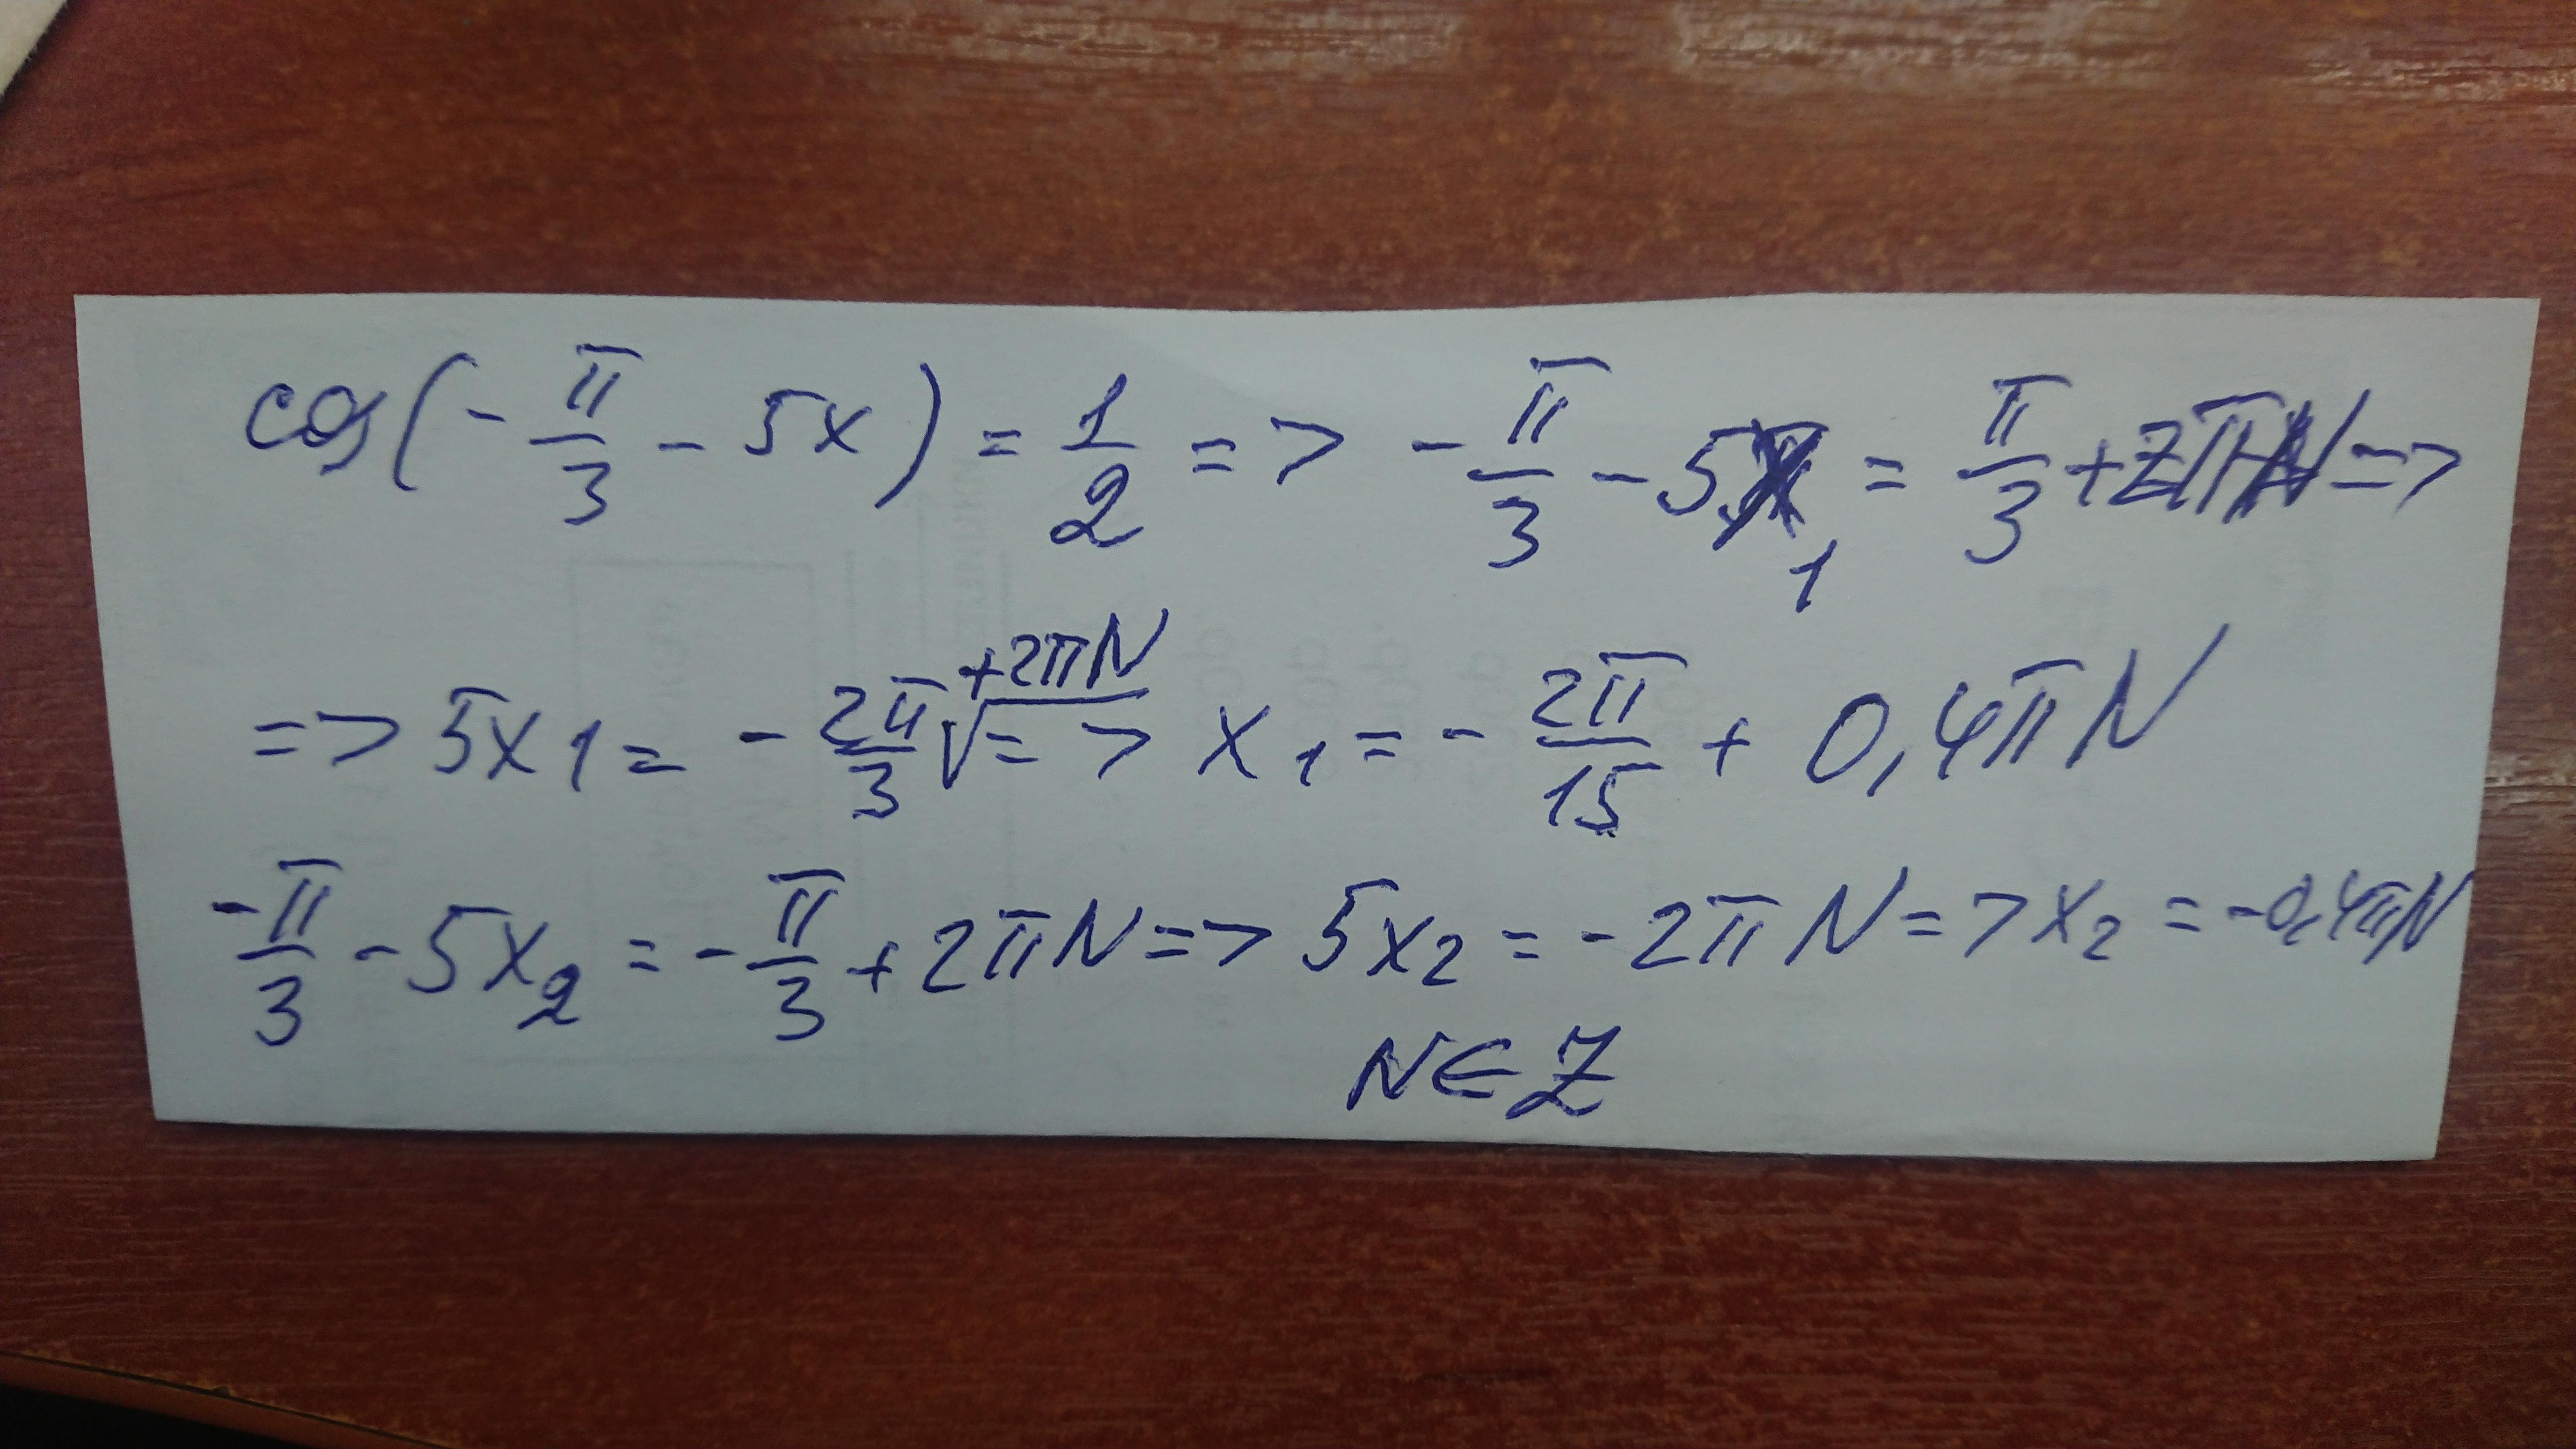 cos(-π/3 - 5x) = 1/2 => -π/3 - 5x₁ = π/3 + 2πN =>
=> 5x1 = -2π/3 +2πN => x₁ = -2π/15 + 0,4πN
-π/3 - 5x₂ = -π/3 + 2πN => 5x₂ = -2πN => x₂ = -0,4πN
N∈Z